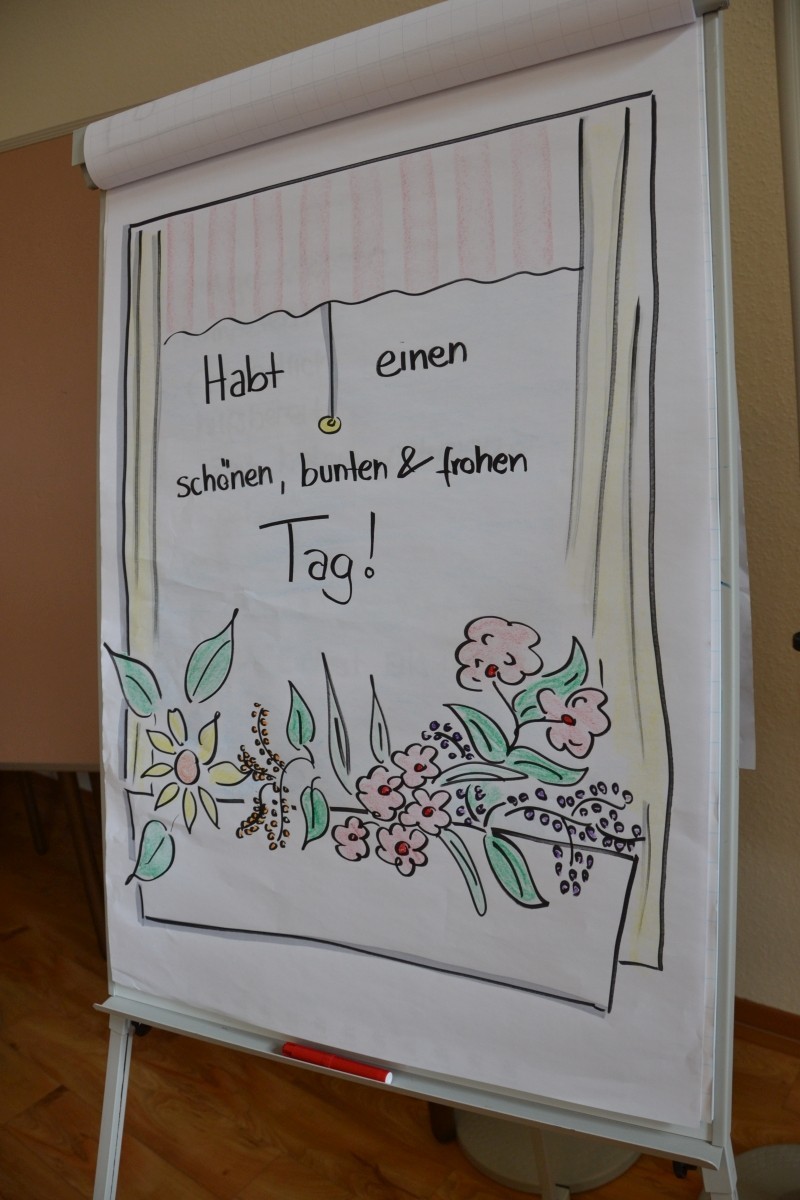 Habt einen
schönen, bunten & frohen
Tag!